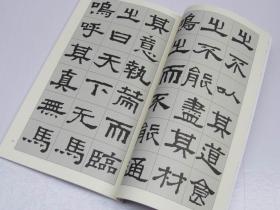 之不以其道食
之不能盡其材
鳴之而不能通
其意執策而臨
之曰天下无馬
嗚呼其真無馬